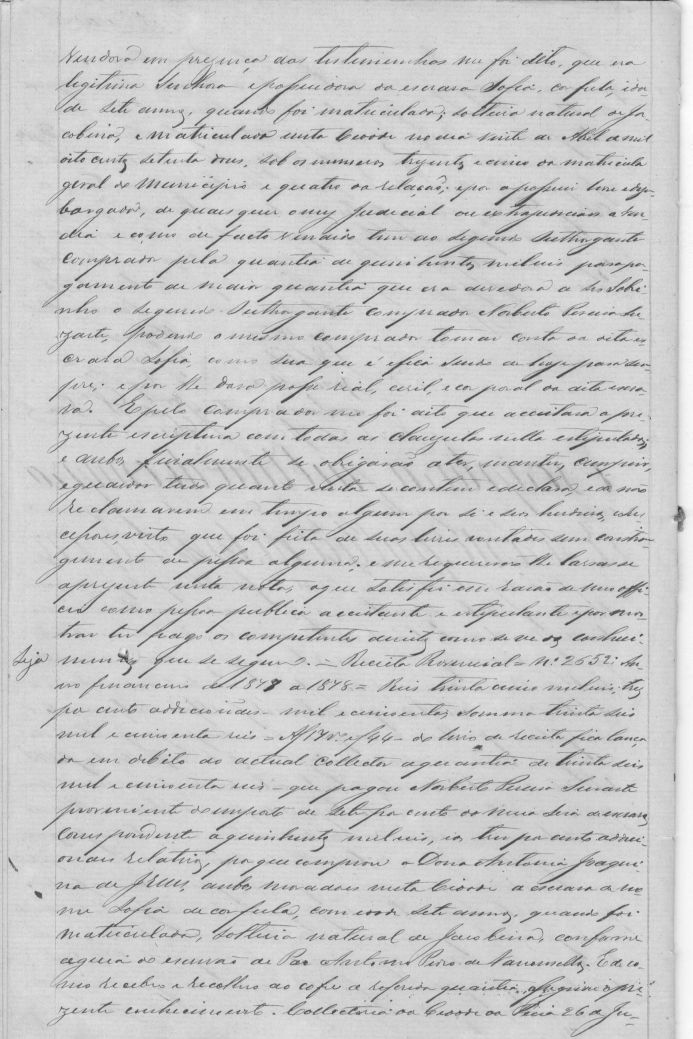 vendora em prezença das testimunhas me foi dito, que era
legitima Senhora e possuidora da escrava Sofia, cor fula, ida
de sete annos, quando foi matriculada; solteira natural de Ja
cobina, e matriculada nesta Cidade no dia vinte de Abril de mil
oito centos setenta dous, sob os numeros trezentos e cinco da matricula
geral do Municipio e quatro da relação; e por a possuir livre e desem
bargada, de quaes quer onus Judicial ou extrajudiciaes a ven
dia e como de facto vendido tem ao segundo Outhorgante
comprador pela quantia de quinhentos mil reis para pa
gamento de maior quantia que era devedora a seu Sobri
nho o segundo Outhorgante comprador Norberto Pereira Du
zarte, podendo o mesmo comprador tomar conta da dita es
crava Sofia, como sua que é e fica sendo de hoje para sem
pre; e por lhe dava posse rial, civil, e cor poral da dita escra
va. E pelo comprador me foi dito que acceitava a pre
zente escriptura com todas as clauzulas nella estipuladas;
e ambos finalmente se obrigarão a ter, manter, cumprir,
e guardar tudo quanto nesta se contem e declara, e a não
reclamarem em tempo algum por si e seus herdeiros,
visto que foi feita de suas livres vontades sem constran
gimento de pessoa alguma; e me requererão lhe lavrasse
a prezente nesta nota, o que satisfiz em razão de meu offi
cio como pessoa publica acceitante e estipulante e por mos
trar ter pago os competentes direitos como se ve dos conheci
Seja
mentos que se seguem. = Receita Provincial = Nº 2652: An
no financeiro de 1877 a 1878 = Reis trinta cinco mil reis; trez
por cento addicionaes mil e cincoenta, somma trinta seis
mil e cincoenta reis = Af 17 vº e/44 = do livro de receita fica lança
da em debito ao actual collector a quantia de trinta seis
mil e cincoenta reis = que pagou Norberto Pereira Duzarte
proveniente do imposto de sete por cento da meia siza de escravos
correspondente a quinhentos mil reis, e os trez por cento addici
onaes relativos, por que comprou a Dona Antonia Joaqui
na de Jezus, ambos moradores nesta Cidade a escrava de no
me Sofia de cor fula, com idade sete annos, quando foi
matriculada, solteira natural de Jacobina, conforme
a guia do escrivão de Paz Antonio Pires de Vasconcellos. E de co
mo recebeu e recolheu ao cofre a referida quantia, assignou o pre
zente conhecimento. Collectoria da Cidade da Feira 26 de Ju-